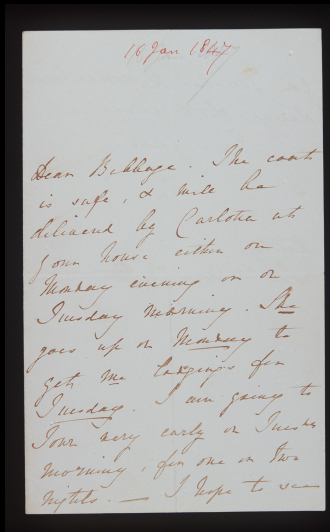 16 Jan 1847
Dear Babbage. The coat
is safe, & will be
delivered by Carlotta at
your house either on
Monday evening or on
Tuesday morning. She
goes up on Monday to
get me lodgings for
Tuesday. I am going to
Town very early on Tuesday
morning, for one or two
nights. — I hope to see